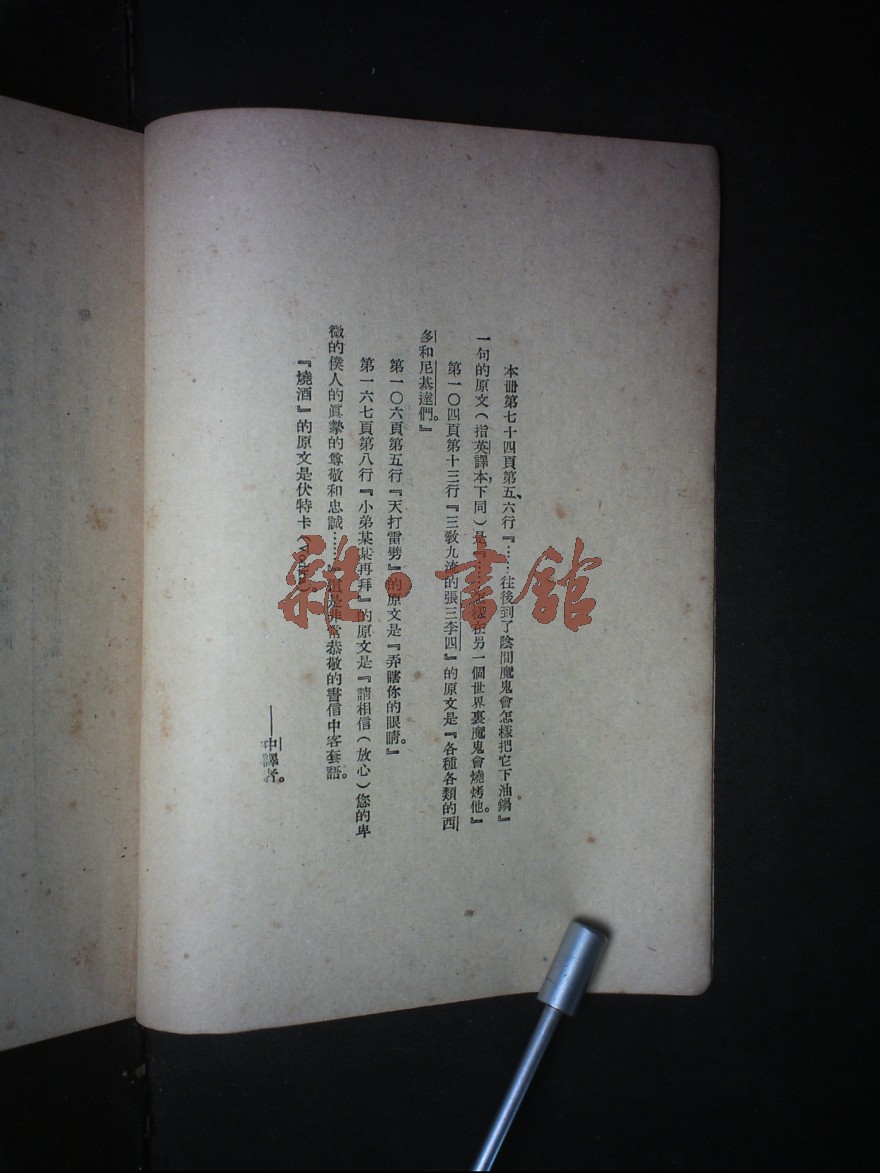 本册第七十四頁第五、六行『……往後到了陰間魔鬼會怎樣把它下油鍋』
一句的原文（指英譯本，下同）是『……怎樣在另一個世界裏魔鬼會燒烤他。』
第一〇四頁第十三行『三敎九流的張三李四』的原文是『各種各類的西
多和尼基達們。』
第一〇六頁第五行『天打雷劈』的原文是『弄瞎你的眼睛。』
第一六七頁第八行『小弟某某再拜』的原文是『請相信（放心）您的卑
微的僕人的眞摯的尊敬和忠誠……』這是非常恭敬的書信中客套語。
『燒酒』的原文是伏特卡
——中譯者。
雜·書舘